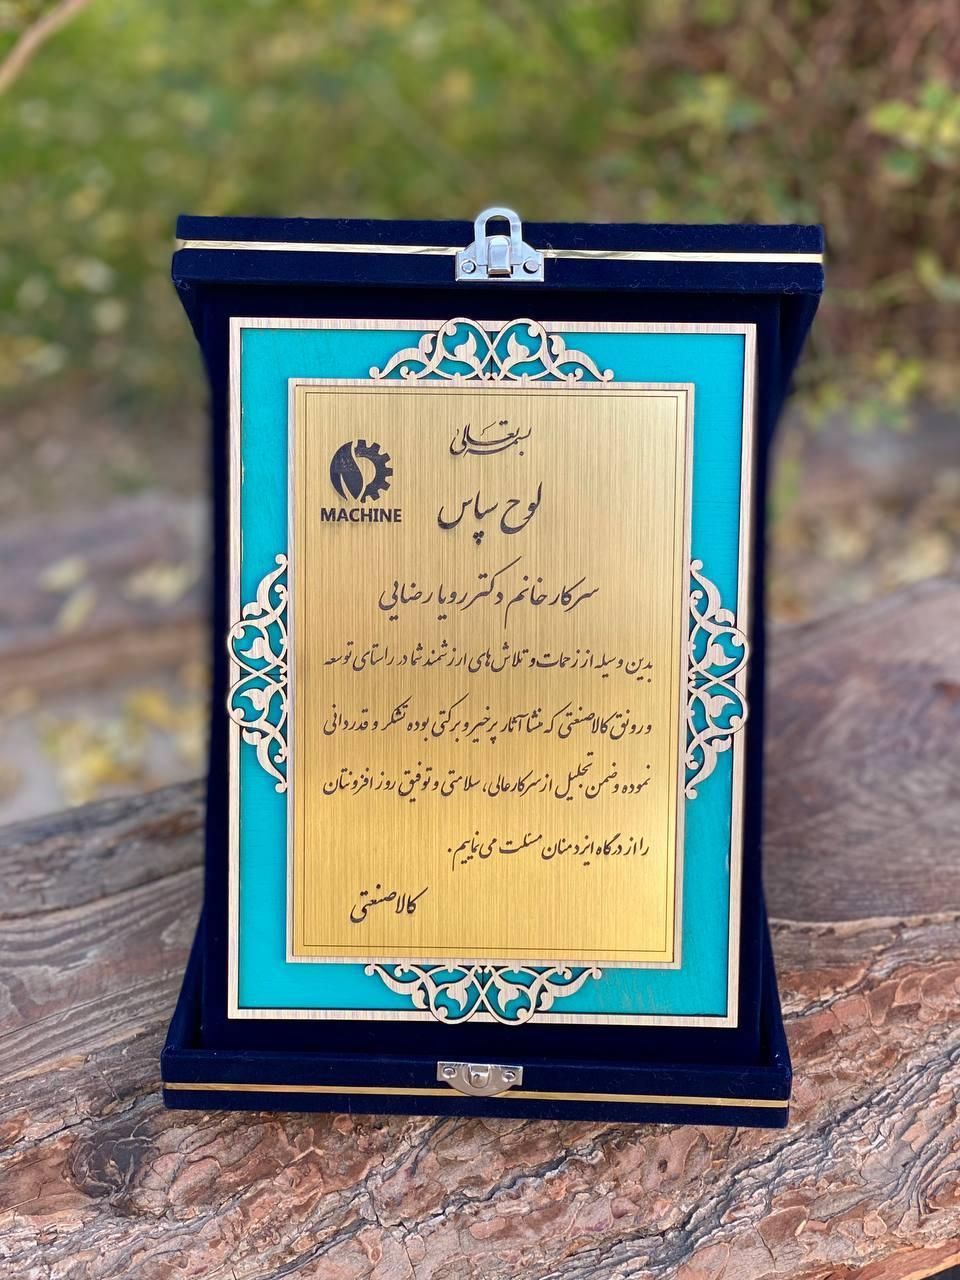 بسمه تعالی
MACHINE
لوح سپاس
سرکار خانم دکتر رویا رضایی
بدین وسیله از زحمات و تلاش های ارزشمند شما در راستای توسعه
و رونق کالاصنعتی که منشا آثار پرخیر و برکتی بوده تشکر و قدردانی
نموده و ضمن تجلیل از سرکارعالی، سلامتی و توفیق روز افزونتان
را از درگاه ایزد منان مسئلت می نماییم.
کالاصنعتی